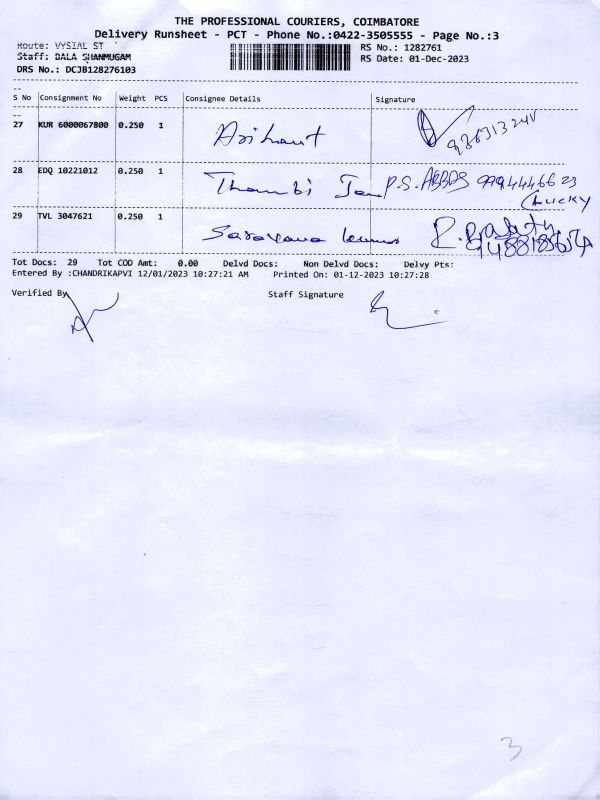 THE PROFESSIONAL COURIERS, COIMBATORE
Delivery Runsheet - PCT - Phone No.:0422-3505555 - Page No.:3
Route: VYSIAL ST
RS No.: 1282761
Staff: BALA SHANMUGAM
RS Date: 01-Dec-2023
DRS No.: DCJB128276103
S No Consignment No Weight PCS Consignee Details Signature
27 KUR 6000067800 0.250 1 Arihant
28 EDQ 10221012 0.250 1 Thambi P.S.ABBAS 9994446623
(LUCKY)
29 TVL 3047621 0.250 1 Saravana Kumar
Tot Docs: 29 Tot COD Amt: 0.00 Delvd Docs: Non Delvd Docs: Delvy Pts:
Entered By :CHANDRIKAPVI 12/01/2023 10:27:21 AM Printed On: 01-12-2023 10:27:28
Verified By Staff Signature
3